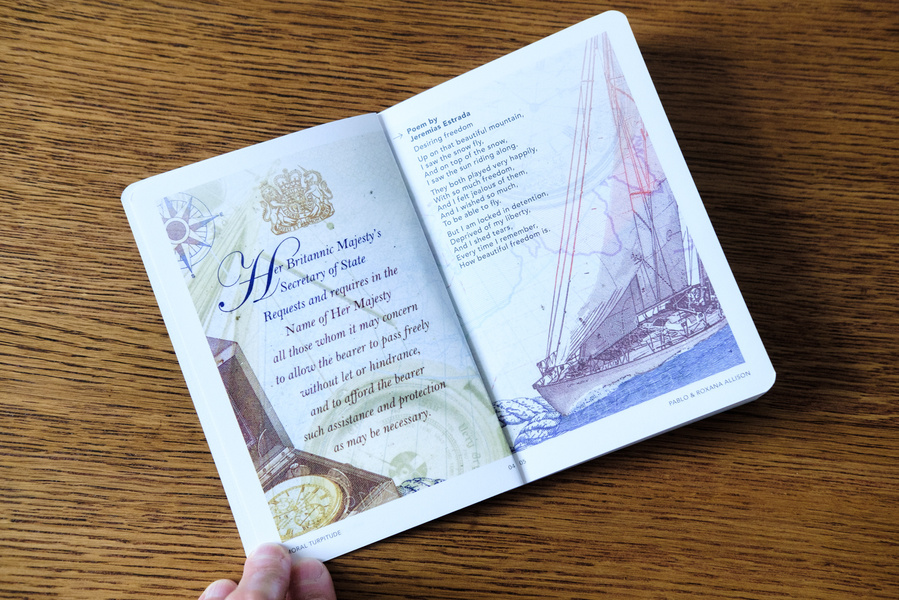 Her Britannic Majesty's
Secretary of State
Requests and requires in the
Name of Her Majesty
all those whom it may concern
to allow the bearer to pass freely
without let or hindrance,
and to afford the bearer
such assistance and protection
as may be necessary.
ORAL TURPITUDE
Poem by
Jeremias Estrada
Desiring freedom
Up on that beautiful mountain,
I saw the snow fly,
And on top of the snow,
I saw the sun riding along.
They both played very happily,
With so much freedom,
And I felt jealous of them,
And I wished so much,
To be able to fly,
But I am locked in detention,
Deprived of my liberty,
And I shed tears,
Every time I remember,
How beautiful freedom is.
04 05
PABLO & ROXANA ALLISON